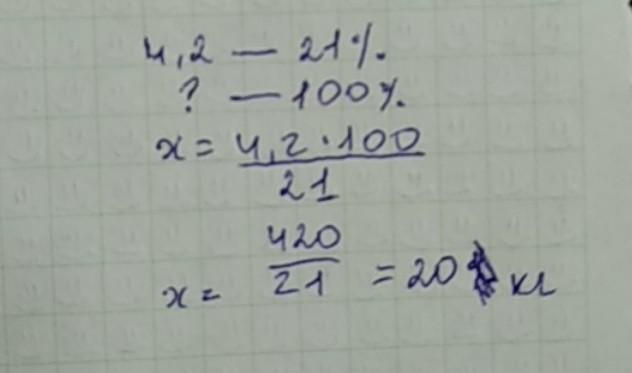 4,2 — 21%.
? — 100%.
x = 4,2 · 100 / 21
x = 420 / 21 = 20 кг